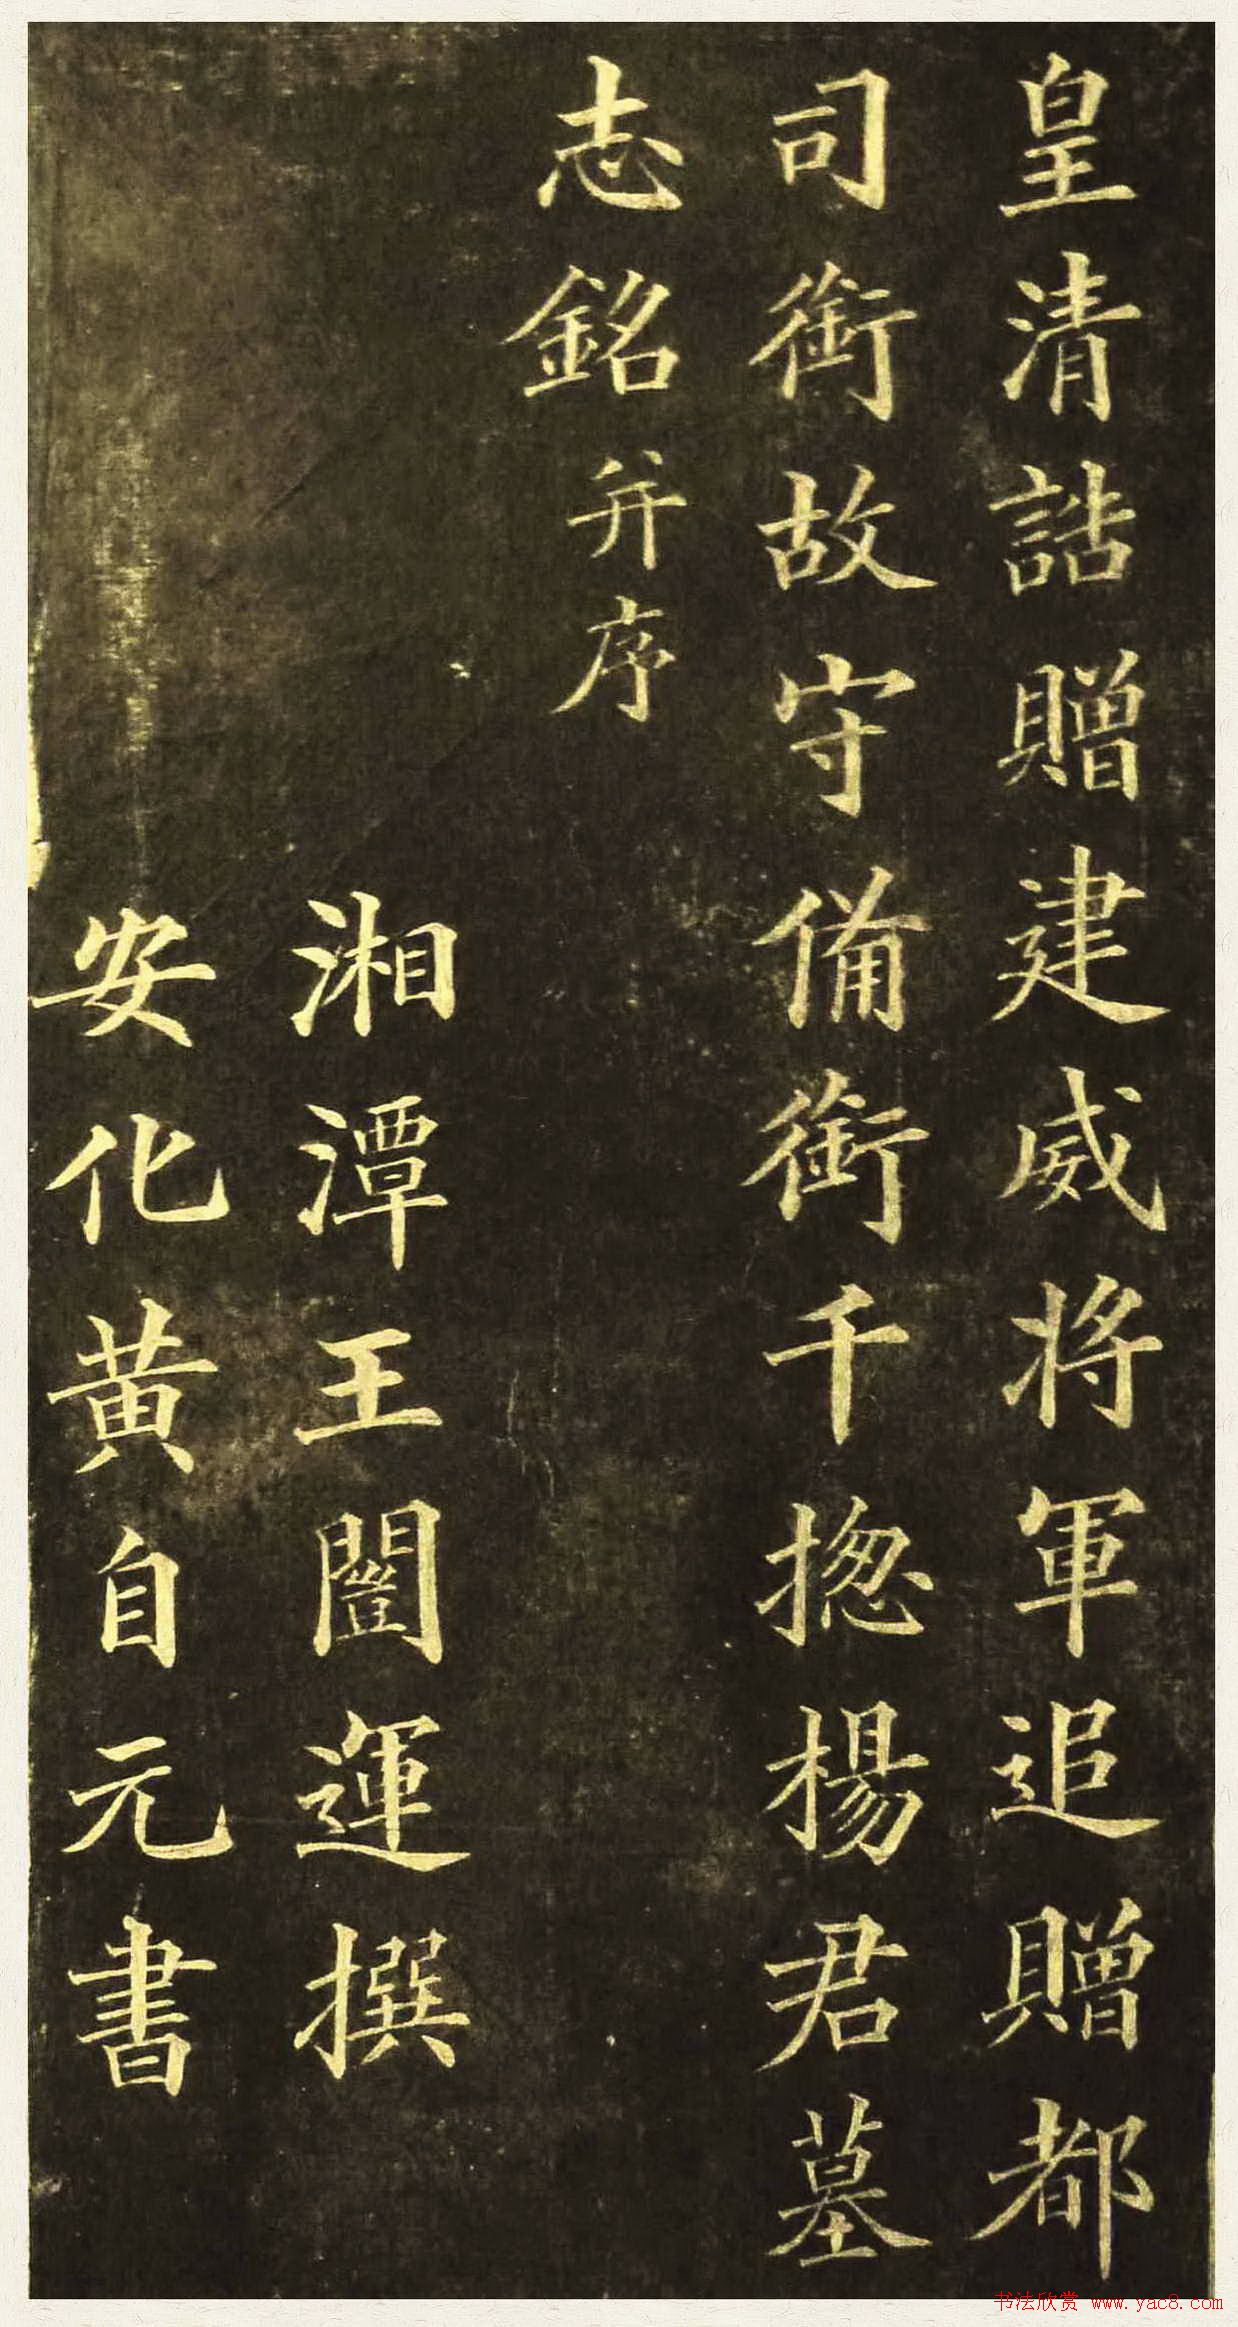 皇清誥贈建威將軍追贈都
司銜故守備銜千摠楊君墓
志銘并序
湘潭王闓運撰
安化黄自元書
书法欣赏 www.yac8.com